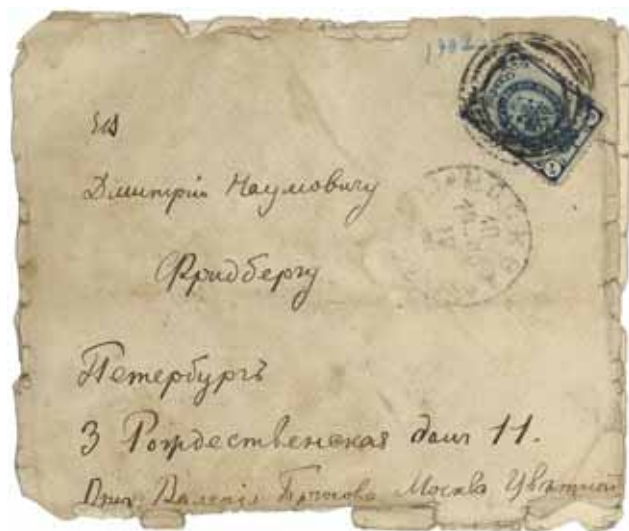 Дмитрію Наумовичу
Фридбергу
Петербургъ
3 Рождественская домъ 11.
Валерія Брюсова Москва Цвѣтной